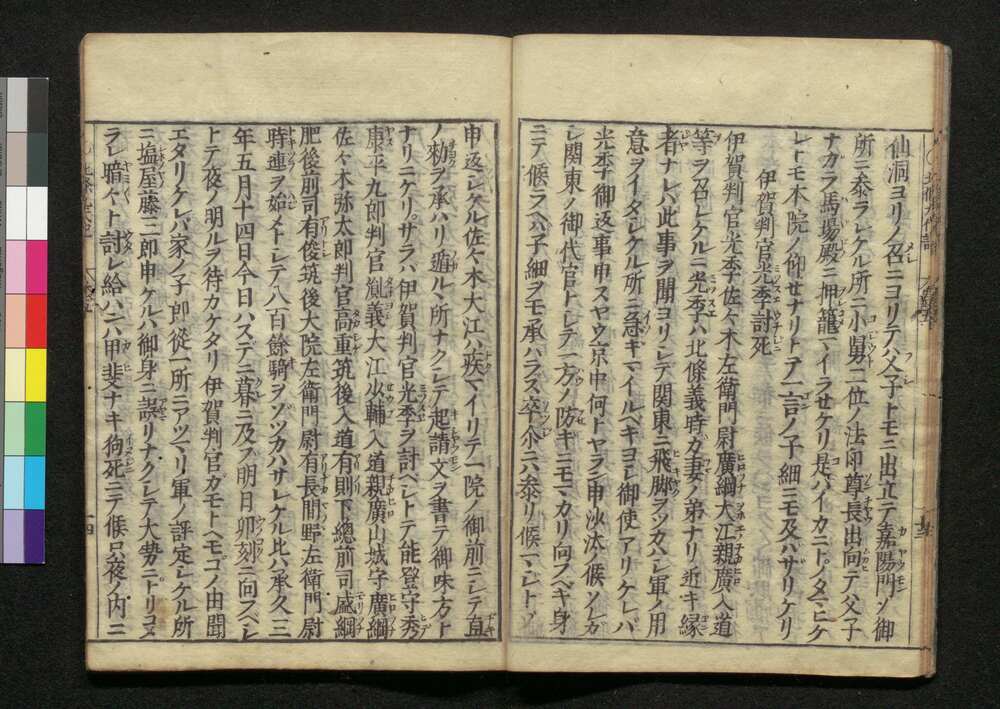 仙洞ヨリノ召ニヨリテハ父子トモニ出立テ嘉陽門ノ御
所ニ参ラレケル所ニ小舅二位ノ法印尊長出向テ父子
ナカラ馬場殿ニ押籠マイラせケリ是ハイカニトノタマヒケ
レトモ本院ノ仰せナリトテ一言ノ子細ニモ及ハサリケリ
伊賀判官光季討死
伊賀判官光季佐々木左衛門尉廣綱大江親廣入道
等ヲ召レケルニ光季ハ北條義時カ妻ノ弟ナリ近キ縁
者ナレハ此事ヲ聞ヨリシテ関東ニ飛脚ヲツカハレ軍ノ用
意ヲイタシケル所ニ急ギマイルベキヨシ御使アリケレバ
光季御返事申スヤウ京中何トヤラン申沙汰候ソレガ
シ関東ノ御代官トシテ一方ノ防ギニモマカリ向スベキ身
ニテ候ラヘハ子細ヲモ承ハラス卒尓ニ六参リ候マシトゾ
申返シケル佐々木大江ハ疾マイリテ一院ノ御前ニシテ直
ノ勅ヲ承ハリ遁ルヽ所ナクシテ起請文ヲ書テ御味方ト
ナリニケリサラハ伊賀判官光季ヲ討ヘシトテ能登守秀
康平九郎判官胤義大江少輔入道親廣山城守廣綱
佐々木弥太郎判官高重筑後入道有則下總前司盛綱
肥後前司有俊筑後大院左衛門尉有長間野左衛門尉
時連ヲ始メトシテ八百餘騎ヲゾツカハサレケル比ハ承久三
年五月十四日今日ハスデニ暮ニ及ブ明日卯刻ニ向スヘシ
トテ夜ノ明ルヲ待カケタリ伊賀判官ガモトヘモコノ由聞
エタリケレバ家ノ子郎従一所ニアツマリ軍ノ評定シケル所
ニ塩屋藤三郎申ケルハ御身ニ誤リナクシテ大勢ニトリコメ
ラレ暗々ト討レ給ハヽ六甲斐ナキ狗死ニテ候只夜ノ内ニ
十四